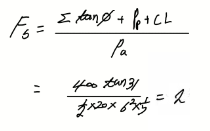 F₅ = (Σ tanø + Pp + CL) / Pa
= (400 tan 31) / (½ × 20 × 6² × ⅓) = 2